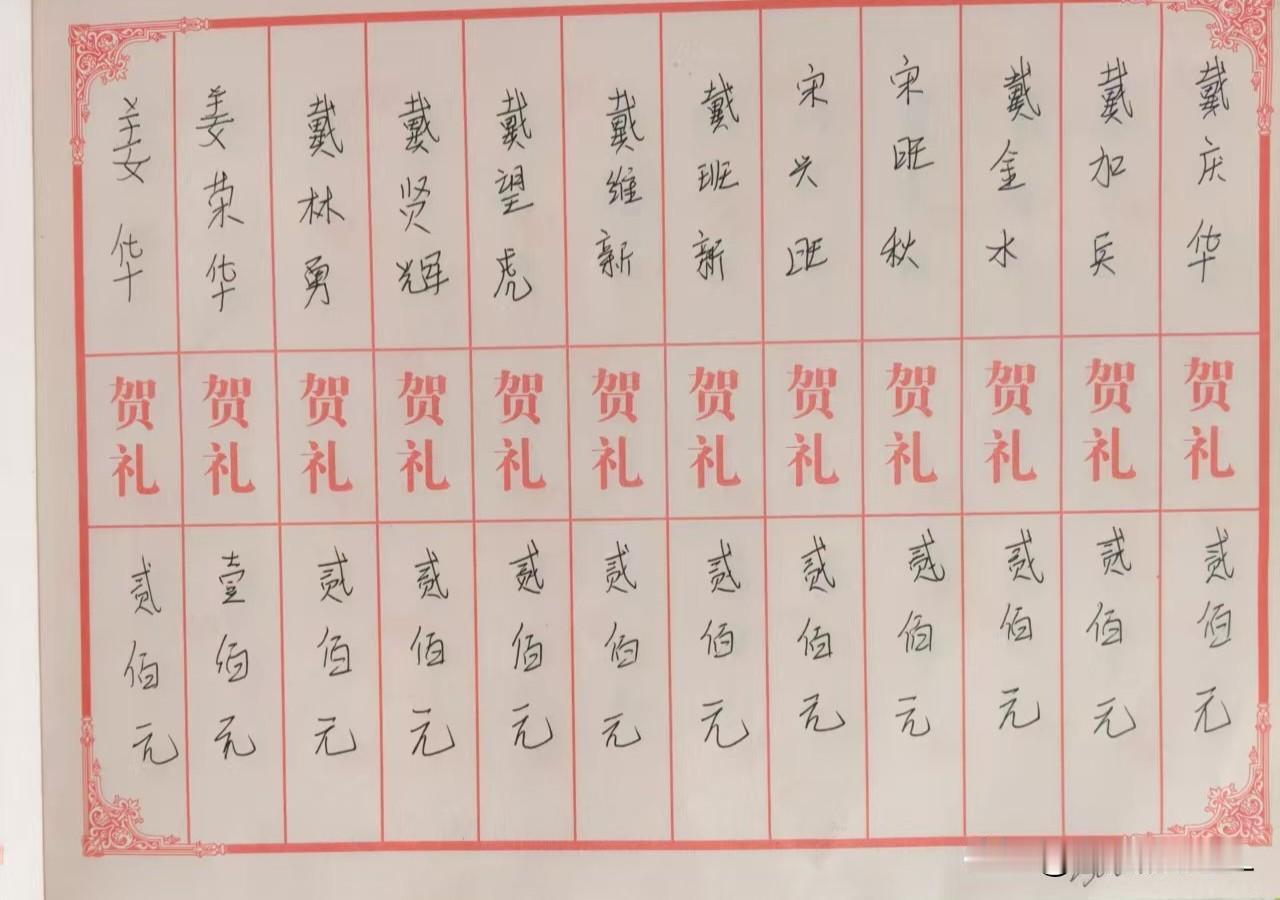 戴庆华 贺礼 贰佰元
戴加兵 贺礼 贰佰元
戴金水 贺礼 贰佰元
宋旺秋 贺礼 贰佰元
宋兴旺 贺礼 贰佰元
戴班新 贺礼 贰佰元
戴维新 贺礼 贰佰元
戴望虎 贺礼 贰佰元
戴贤辉 贺礼 贰佰元
戴林勇 贺礼 贰佰元
姜荣华 贺礼 壹佰元
姜华 贺礼 贰佰元